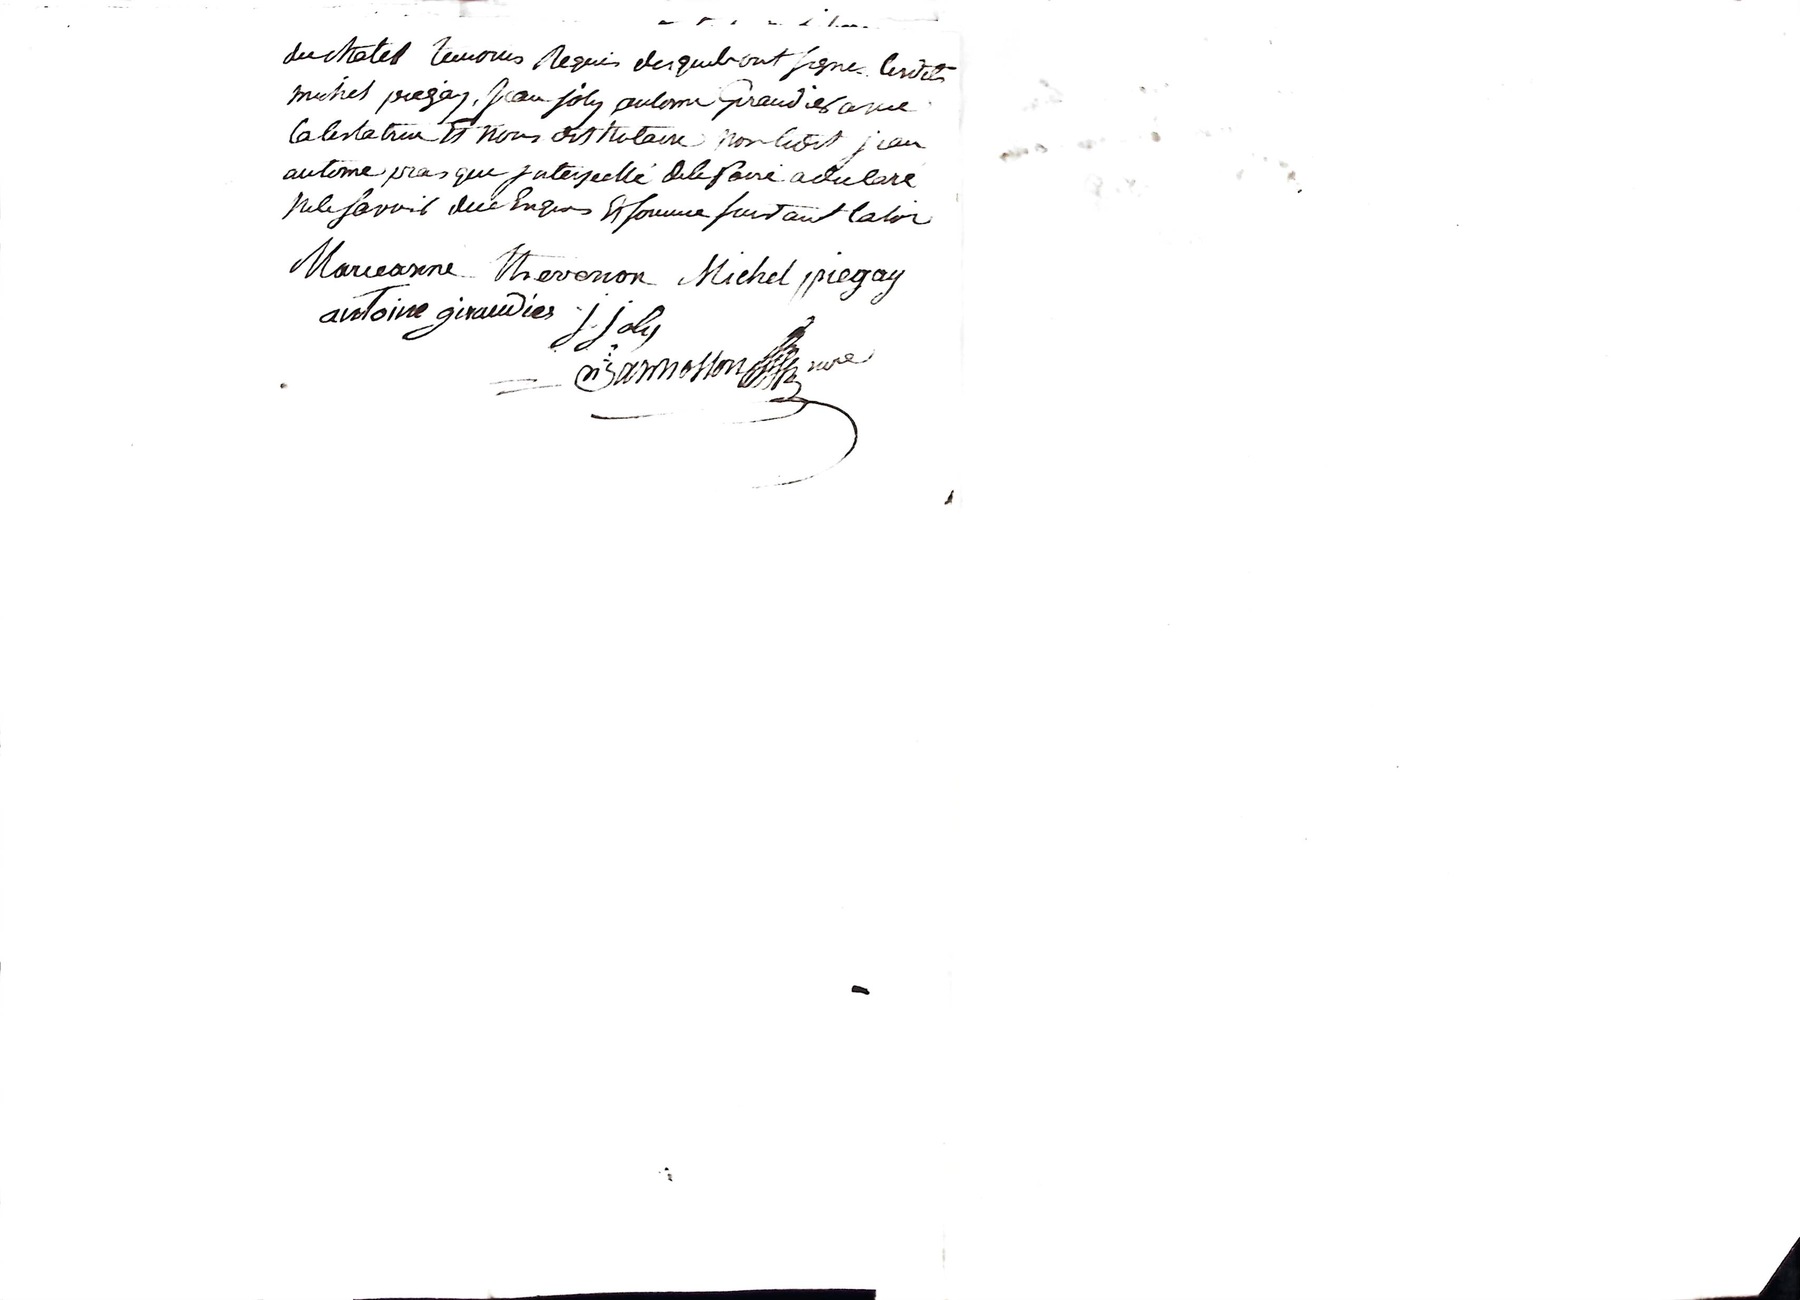 du chatel temoins Requis desquels ont signes lesdits
michel piegay, Jean joly antoine Giraudier avec
la testatrice Et nous dit Notaire non ledit jean
antoine pras que interpellé de le faire a declaré
ne le savoir de ce Enquis Et somme suivant la loi
Marieanne Thevenon Michel piegay
antoine giraudier j. joly
Bannosson nore